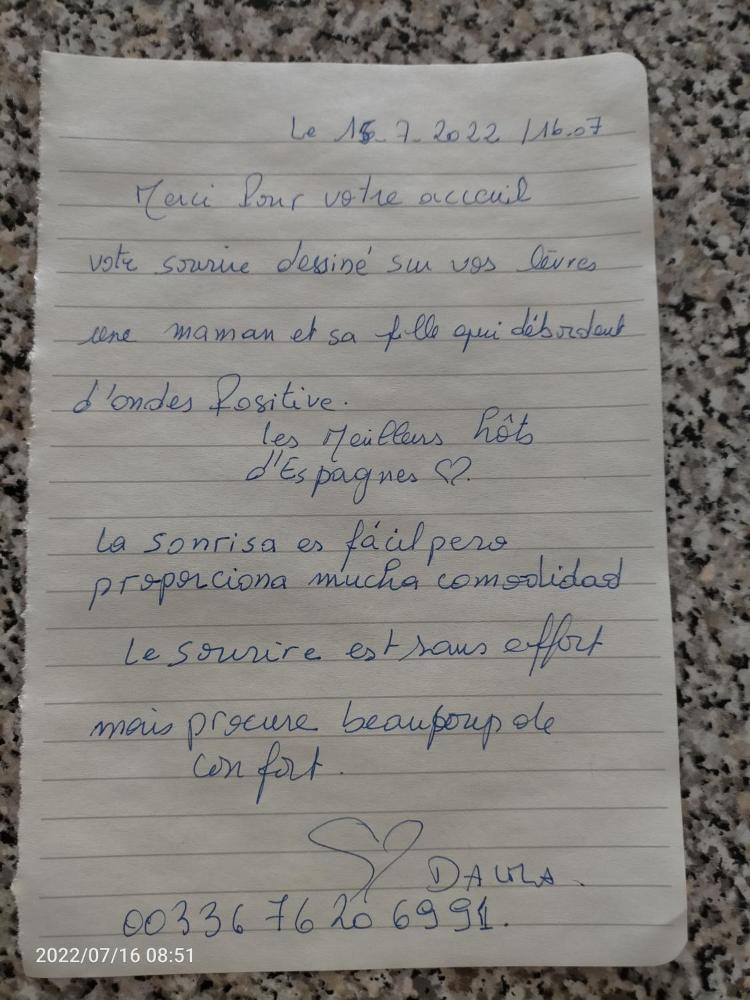 Le 15.7.2022 /16.07
Merci Pour votre acceuil
votre sourire dessiné sur vos lèvres
une maman et sa fille qui débordent
d'ondes Positive.
les Meilleurs hôts
d'Espagnes ♡.
La sonrisa es fácil pero
proporciona mucha comodidad
Le sourire est sans effort
mais procure beaucoup de
confort.
♡
00336 76 20 6991.
2022/07/16 08:51